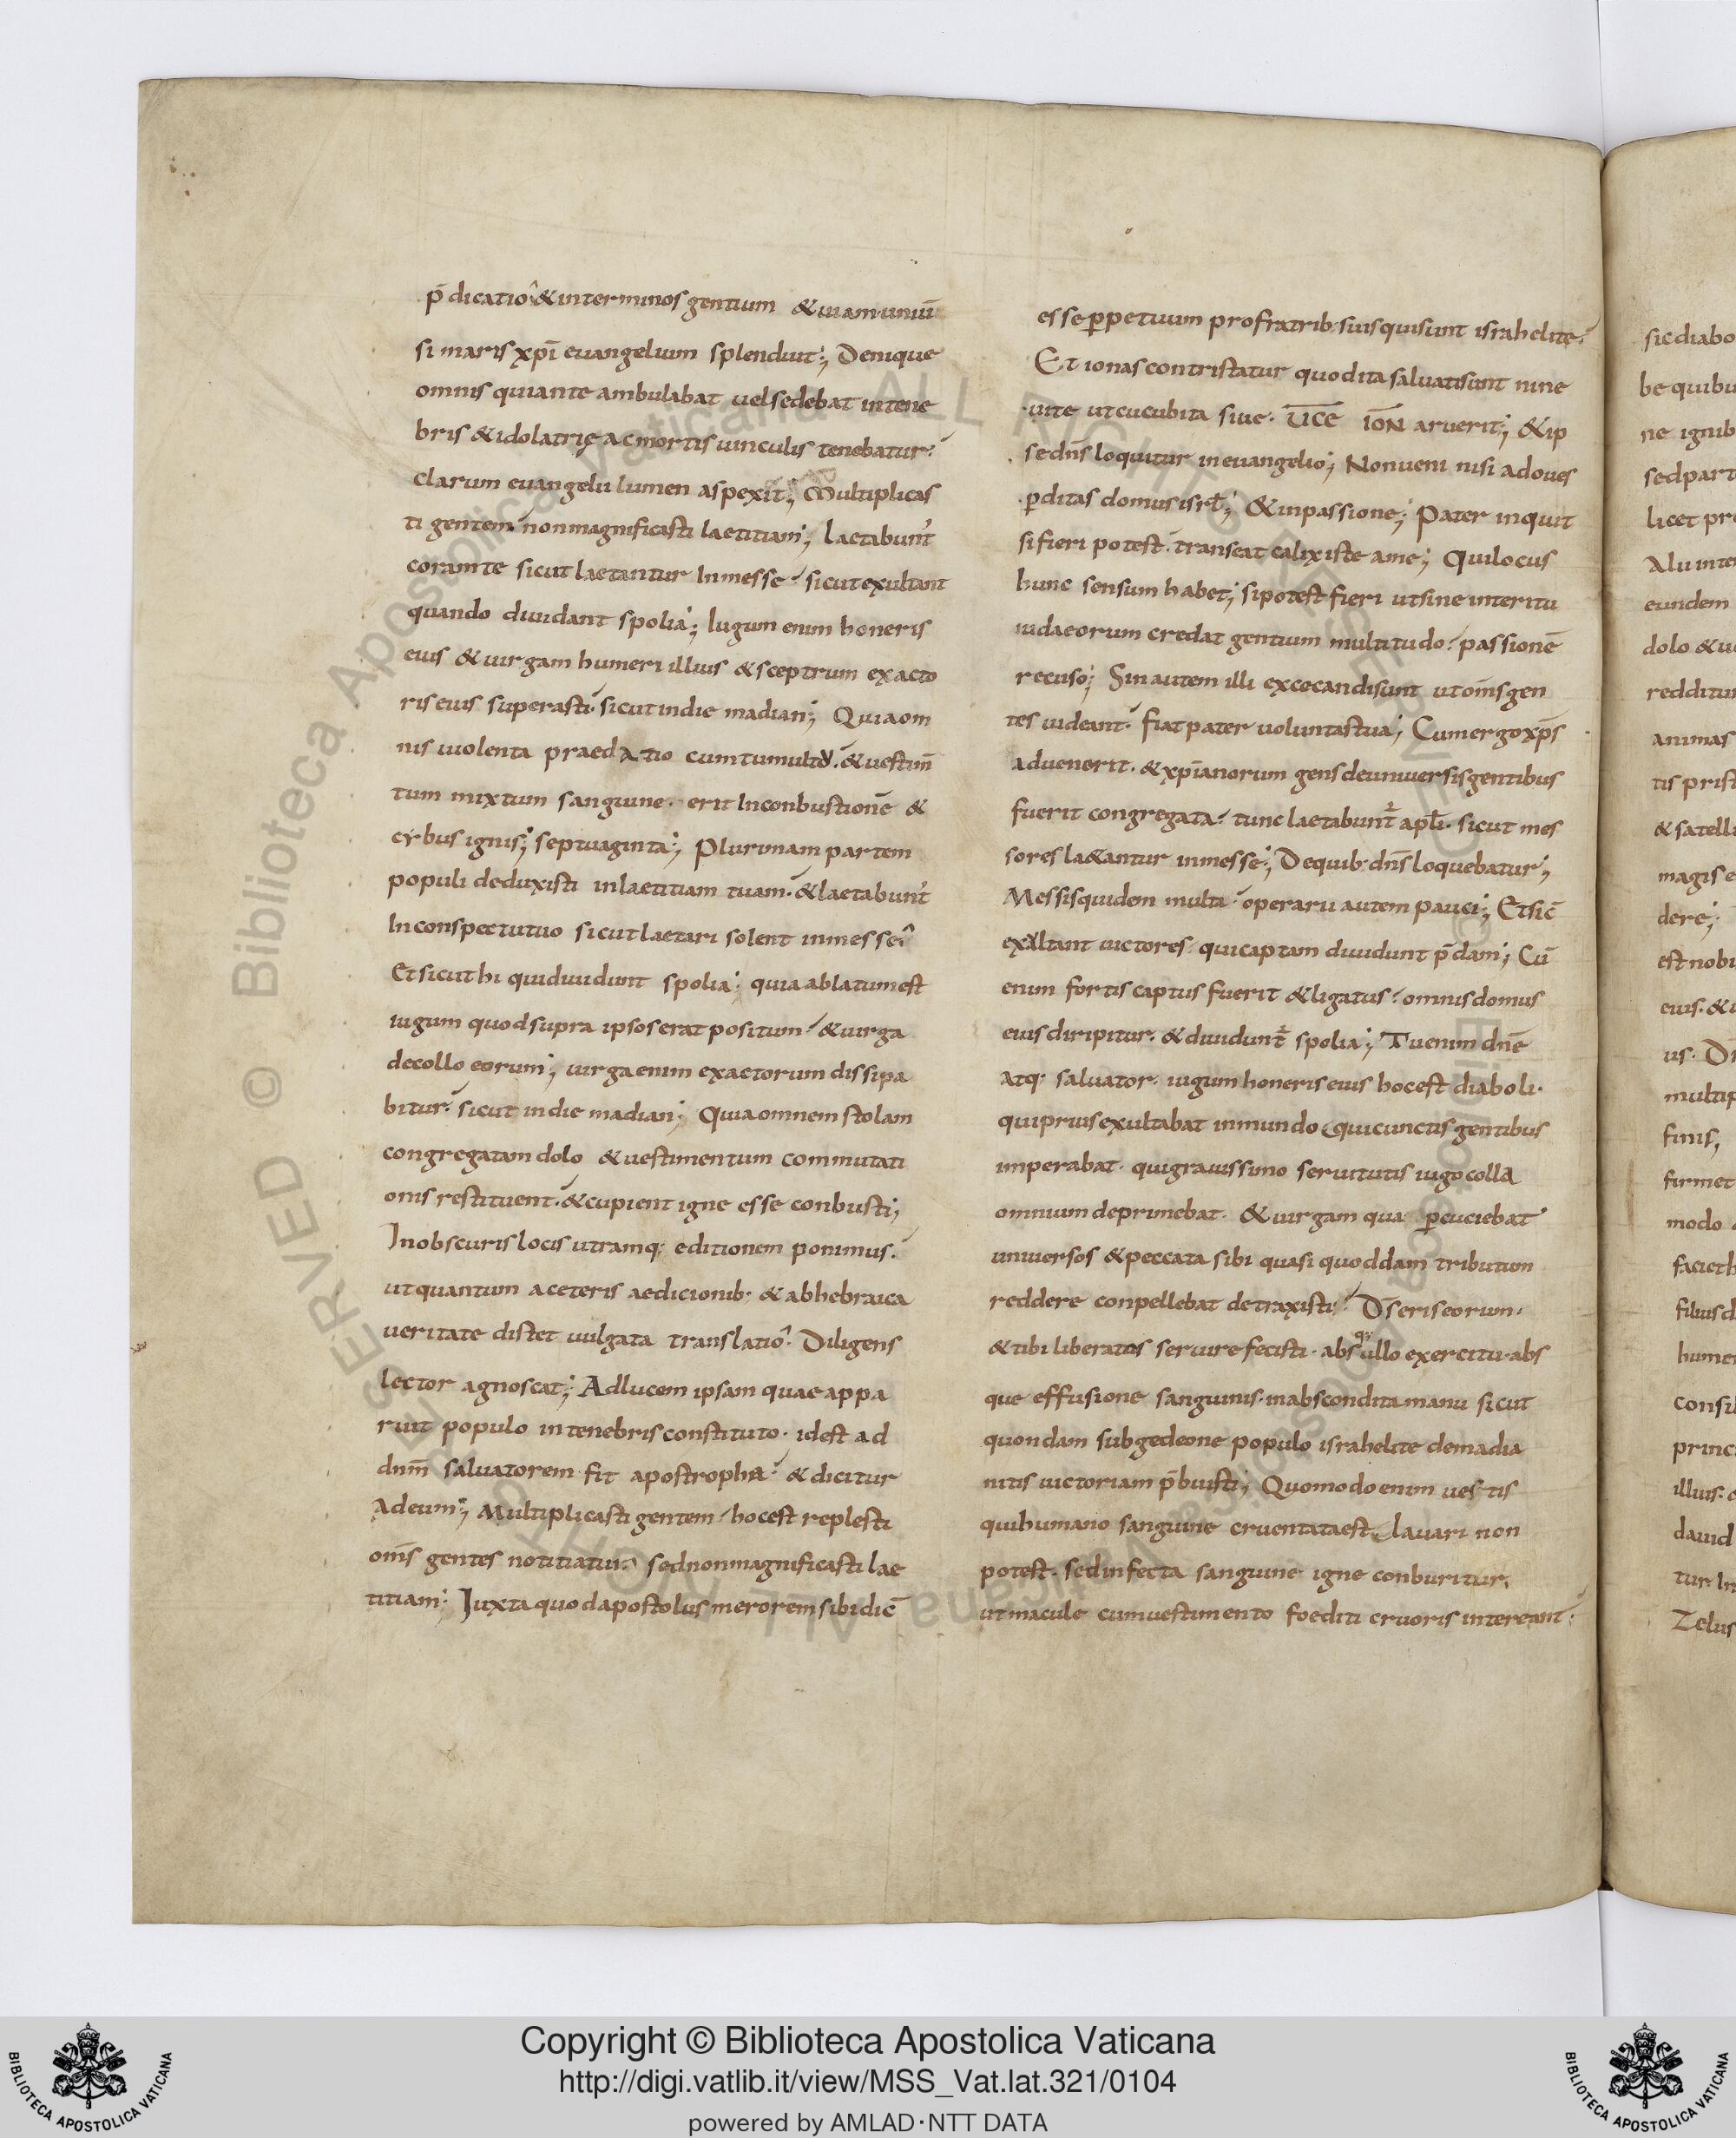 p̄dicatio &interminosgentium &uiamuniū
si maris xp̄i euangelium splenduit; Denique
omnis quiante ambulabat uelsedebat intene
bris &idolatrię acmortis uinculis tenebatur.
clarum euangelii lumen aspexit; Multiplicas
ti gentem nonmagnificasti laetitiam; laetabunt̄
coramte sicut laetantur Inmesse sicutexultant
quando diuidant spolia; Iugum enim honeris
eius &uirgam humeri illius &sceptrum exacto
ris eius superasti sicutindie madian; Quiaom
nis uiolenta praedatio cumtumultu. &uestim̄
tum mixtum sanguine. erit Inconbustionē &
cybus ignis; septuaginta; Plurimam partem
populi deduxisti inlaetitiam tuam. &laetabunt̄
Inconspectutuo sicutlaetari solent inmesse
Etsicuthi quidiuidunt spolia; quia ablatumest
iugum quodsupra ipsoserat positum &uirga
decollo eorum; uirgaenim exactorum dissipa
bitur. sicut indie madian; Quiaomnem stolam
congregatam dolo &uestimentum commutati
onis restituent. &cupient igne esse conbusti;
Inobscuris locis utramq; editionem ponimus.
utquantum aceteris aedicionib; &abhebraica
ueritate distet uulgata translatio. Diligens
lector agnoscat; Adlucem ipsam quae appa
ruit populo intenebris constituto. idest ad
dnm̄ saluatorem fit apostropha &dicitur
Adeum; Multiplicasti gentem hocest replesti
om̄s gentes notitiatui. sednonmagnificasti lae
titiam; Iuxta quodapostolus merorem sibi dic̄
esse p̱petuum profratrib; suisquisunt israhelite.
Et ionas contristatur quodita saluatisunt nine
uite utcucubita siue. UC̄E IŌN aruerit; &ip
se dn̄s loquitur ineuangelio; Nonueni nisi adoues
p̱ditas domus isrł; &inpassione; Pater inquit
sifieri potest. transeat calixiste ame; Quilocus
hunc sensum habet; sipotest fieri utsine interitu
iudaeorum credat gentium multitudo. passionē
recuso; Sinautem illi excecandisunt utom̄sgen
tes uideant. fiatpater uoluntastua; Cumergo xp̄s
aduenerit. &xp̄ianorum gens deuniuersisgentibus
fuerit congregata. tunc laetabunt̄ apłi. sicut mes
sores la&antur inmesse; Dequib; dn̄s loquebatur;
Messisquidem multa operarii autem pauci; Etsic̄
exultant uictores quicaptam diuidunt p̄dam; Cū
enim fortis captus fuerit &ligatus. omnisdomus
eius diripitur. &diuidunt̄ spolia; Tuenim dn̄e
atq; saluator. iugum honeris eius hocest diaboli.
quipriusexultabat inmundo quicunctis gentibus
imperabat. quigrauissimo seruitutis iugo colla
omnium deprimebat. &uirgam qua p̱cuciebat
uniuersos &peccata sibi quasi quoddam tributum
reddere conpellebat detraxisti. D̄seriseorum.
&tibi liberatos seruire fecisti. abs
q;
ullo exercitu. abs
que effusione sanguinis. inabscondita manu sicut
quondam subgedeone populo israhelite demadia
nitis uictoriam p̄buisti; Quomodo enim uestis
quihumano sanguine cruentataest lauari non
potest. sedinfecta sanguine igne conburitur.
utmacule cumuestimento foediti cruoris intereant.
sicdiabo
be quibu
ne ignib
sedpart
licet pre
Alii inte
eundem
dolo &u
redditu
animas
tis prist
&satelli
magis e
dere;
est nobi
eius. &u
us. D
multip
finis,
firmet
modo
faciet h
filius d
humer
Consil
princ
illius.
dauid
tur. In
Zelus
Copyright © Biblioteca Apostolica Vaticana
http://digi.vatlib.it/view/MSS_Vat.lat.321/0104
powered by AMLAD·NTT DATA
BIBLIOTECA APOSTOLICA VATICANA
BIBLIOTECA APOSTOLICA VATICANA